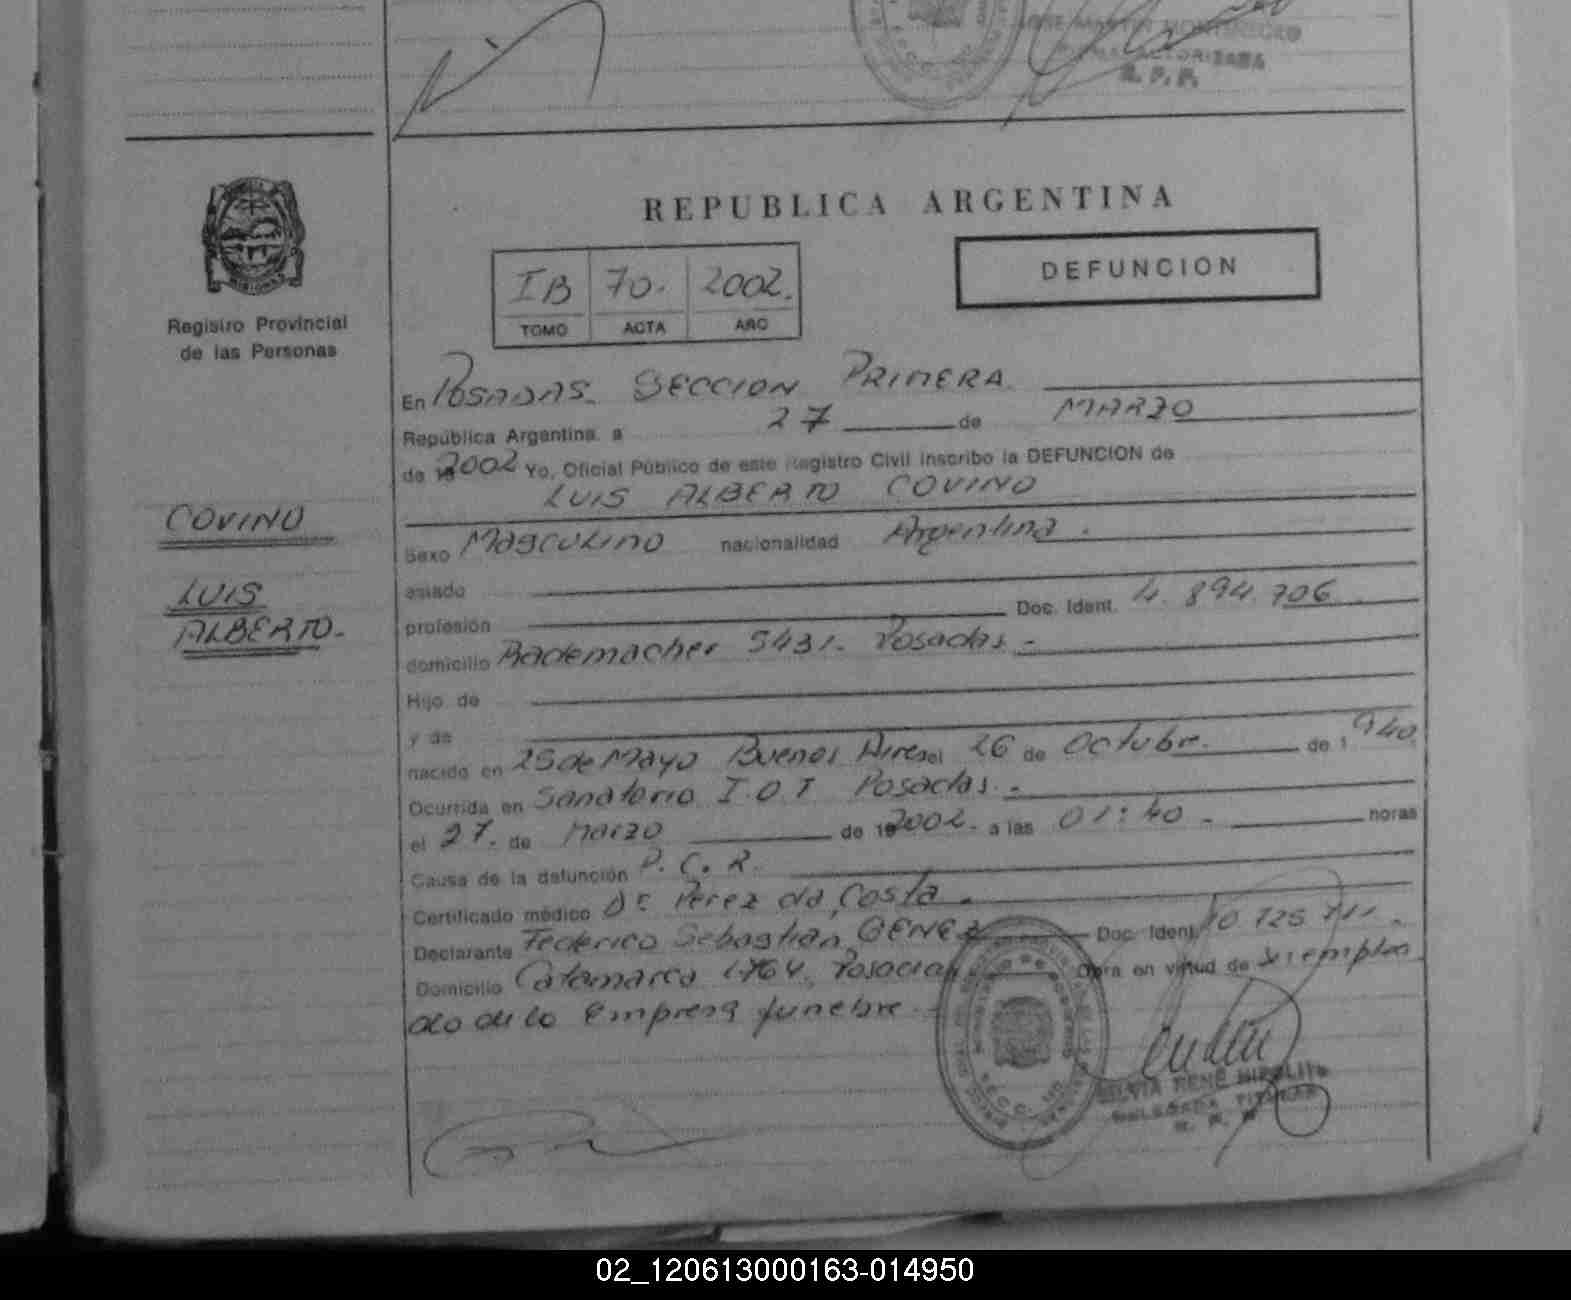 R. P. P.
REPUBLICA ARGENTINA
IB 70. 2002.
TOMO ACTA AÑO
DEFUNCION
Registro Provincial
de las Personas
En Posadas. Seccion Primera
República Argentina. a 27 de Marzo
de 19 2002 Yo, Oficial Público de este Registro Civil inscribo la DEFUNCION de
LUIS ALBERTO COVINO
COVINO
LUIS
ALBERTO.-
Sexo Masculino nacionalidad Argentina.
estado
profesión Doc. Ident. 4.894.706
domicilio Rademacher 5431. Posadas.-
Hijo de
y de
nacido en 25 de Mayo Buenos Aires el 26 de Octubre. de 1 940.
Ocurrida en Sanatorio I.O.T Posadas.-
el 27. de Marzo de 19 2002. a las 01:40.- horas
Causa de la defunción P.C.R.
Certificado médico Dr Perez da Costa.
Declarante Federico Sebastian Doc. Ident.
Domicilio Catamarca Posadas Obra en virtud de
do de la Empresa funebre.
SILVIA RENE HIPOLITO
DELEGADA TITULAR
02_120613000163-014950